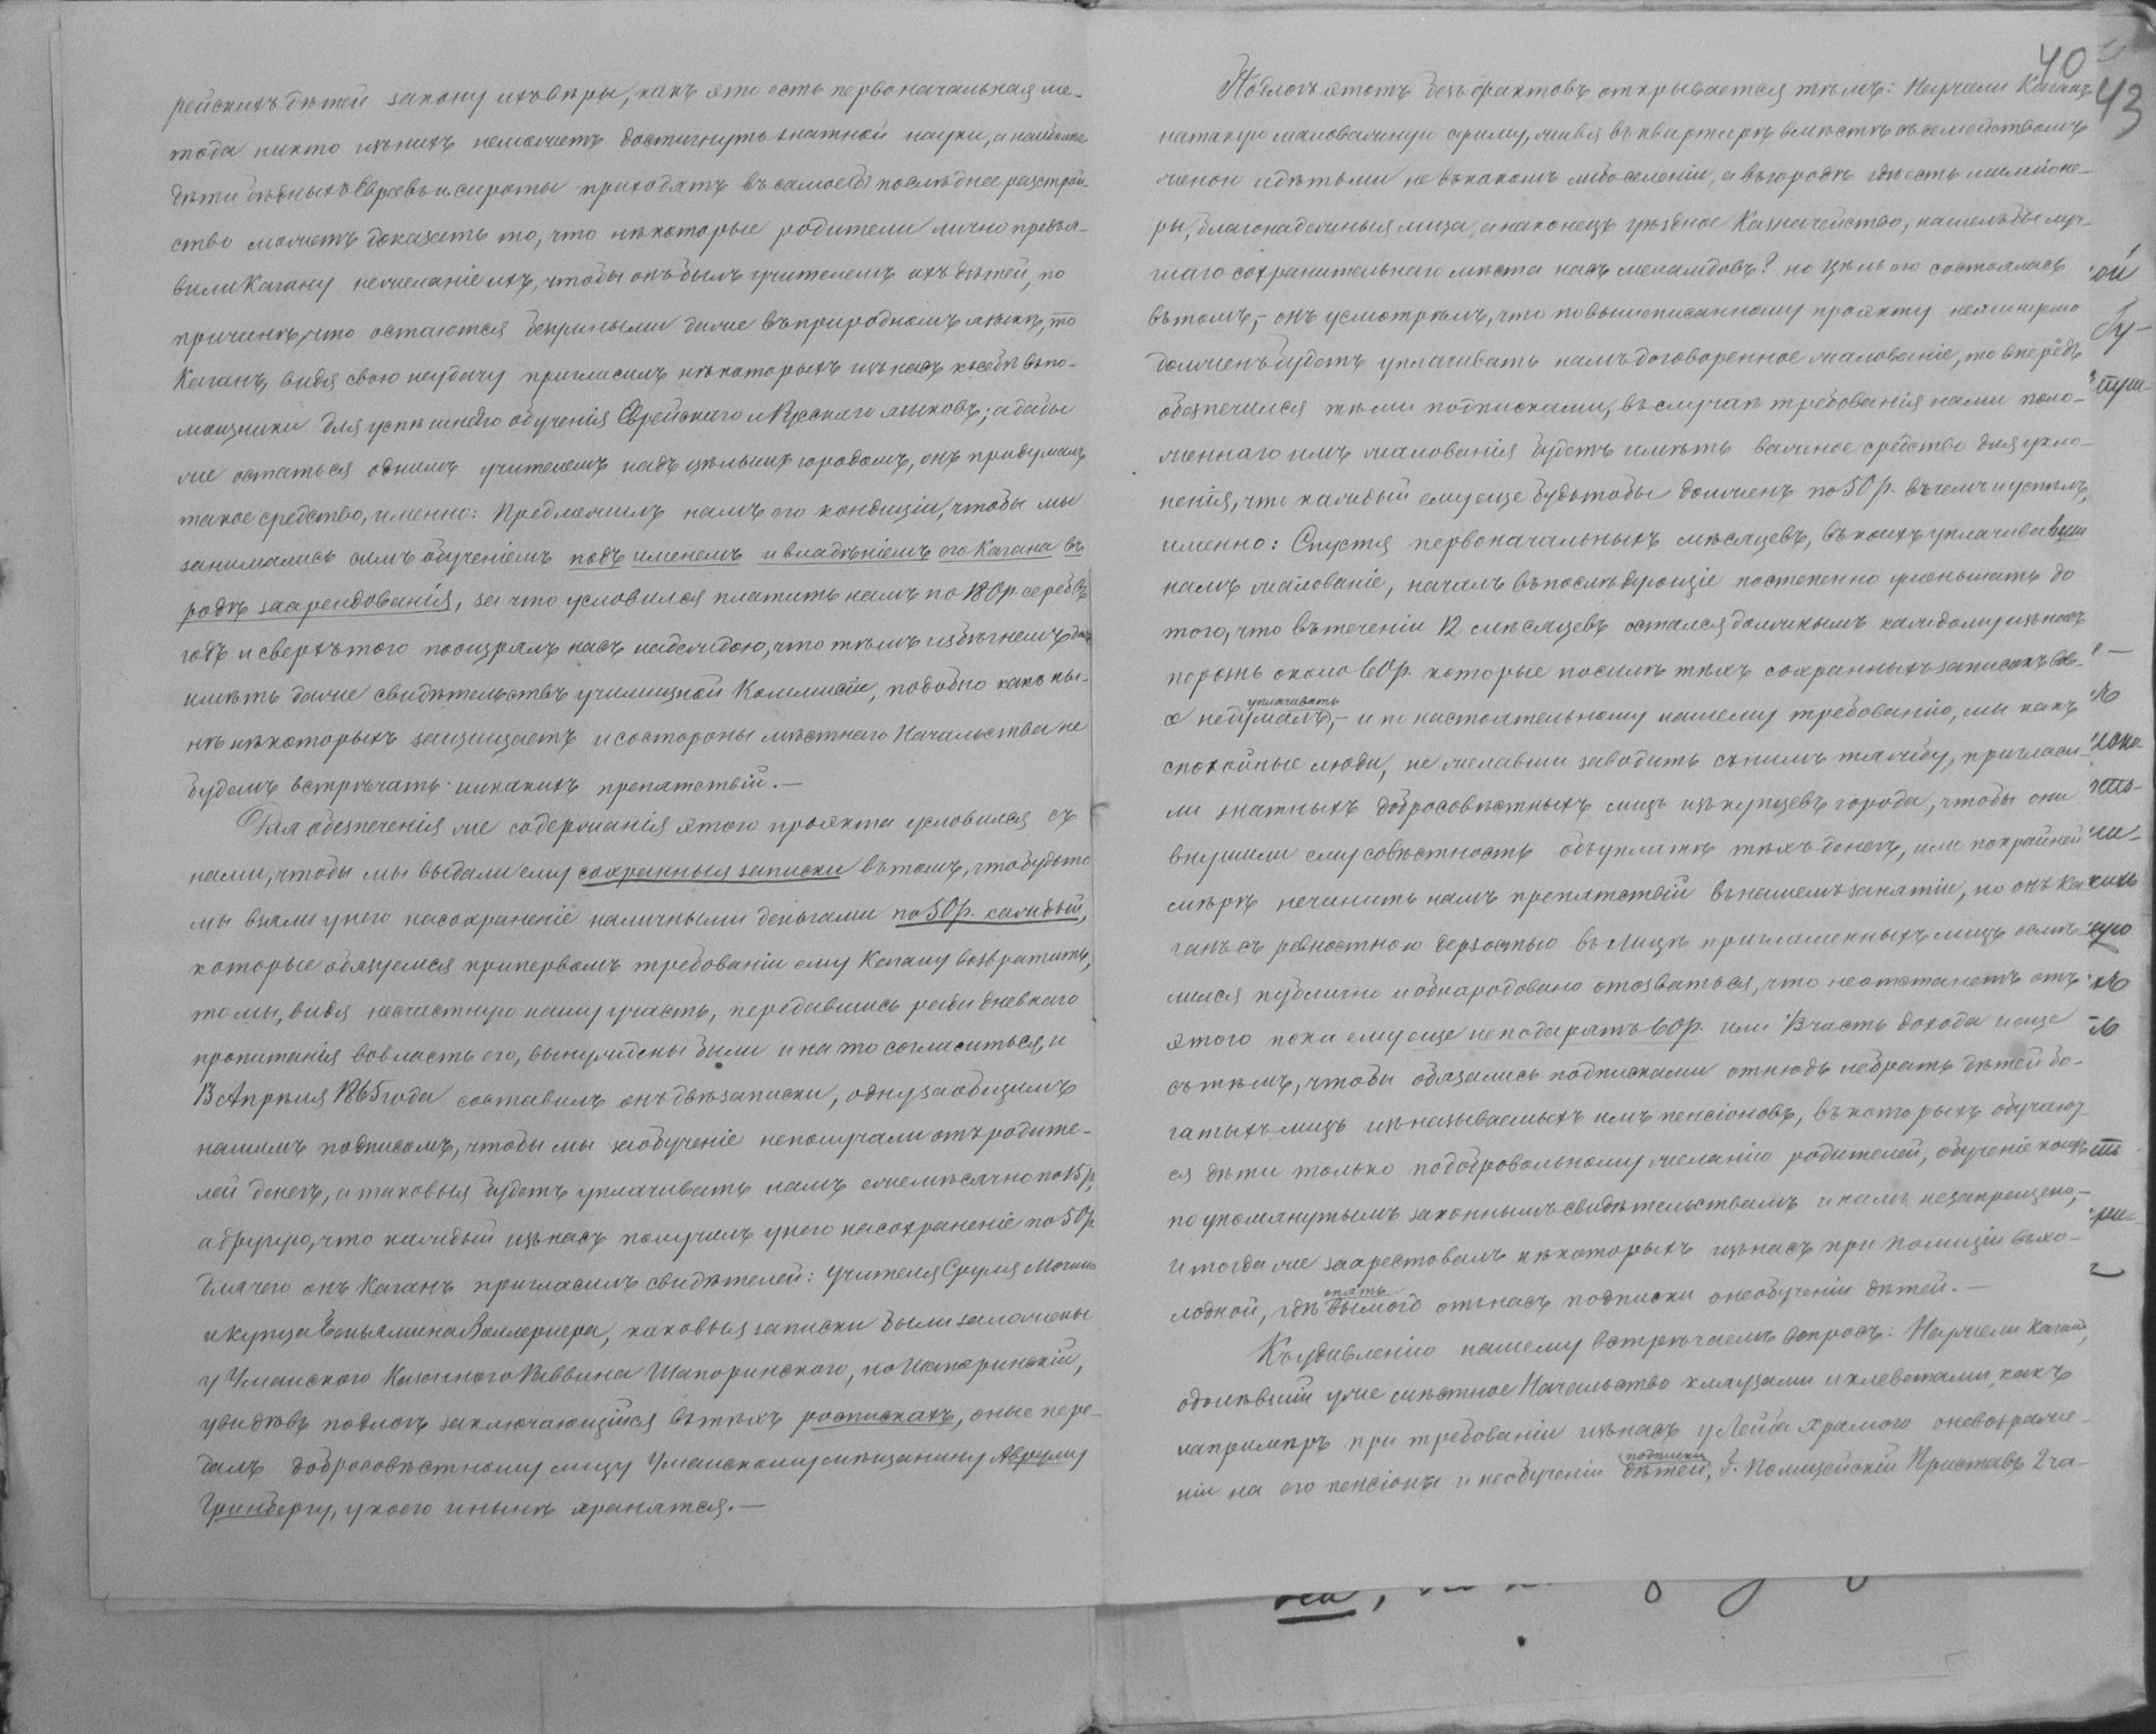 рейскихъ дѣтей закону ихъ вѣры, какъ эти есть первоначальная ме-
тода никто изъ нихъ неможетъ достигнуть знатной науки, а наиболѣе
дѣти бѣдныхъ Евреевъ и сироты приходятъ въ самое бы послѣднее разстрой-
ство можетъ доказать то, что нѣкоторые родители лично предъя-
вили Кагану нежеланіе ихъ, чтобы онъ былъ учителемъ ихъ дѣтей, по
причинѣ, что остаются даже въ природномъ языкѣ, то
Каганъ, видя свою неудачу пригласилъ нѣкоторыхъ изъ насъ къ себѣ въ по-
мощники для успѣшнаго обученія Еврейскаго и Русскаго языковъ; а дабы
же остаться однимъ учителемъ надъ цѣлымъ городомъ, онъ придумалъ
такое средство, именно: Предложилъ намъ его кондиціи, чтобы мы
занимались симъ обученіемъ подъ именемъ и владѣніемъ его Кагана въ
родѣ заарендованія, за что условился платить намъ по 180 р. сереб. въ
годъ и сверхъ того поощрялъ насъ надеждою, что тѣмъ избѣгнемъ
имѣть даже свидѣтельствъ училищной Коммисіи, подобно какъ ны-
нѣ нѣкоторыхъ защищаетъ и состороны мѣстнаго Начальства не
будемъ встрѣчать никакихъ препятствій.—
Для обезпеченія же содержанія этого проэкта условился съ
нами, чтобы мы выдали ему сохранныя записки въ томъ, что будьто
мы взяли у него насохраненіе наличными деньгами по 50 р. каждый,
которые обязуемся при первомъ требованіи ему Кагану возвратить,
то мы, видя несчастную нашу участь, передавшись ради дневнаго
пропитанія во власть его, вынуждены были и на то согласиться, и
13 Апрѣля 1865 года составилъ онъ двѣ записки, одну за общимъ
нашимъ подписомъ, чтобы мы за обученіе неполучали отъ родите-
лей денегъ, а таковыя будетъ уплачивать намъ ежемѣсячно по 15 р,
а другую, что каждый изъ насъ получилъ у него насохраненіе по 50 р.
для чего онъ Каганъ пригласилъ свидѣтелей: учителя Сруля
и купца Беньямина, каковыя записки были заложены
у Уманского Казенного Раввина Шапоринского, но Шапоринскій,
увидѣвъ подлогъ заключающійся въ тѣхъ роспискахъ, оные пере-
далъ добросовѣстному лицу Уманскому мѣщанину Аврулу
Гринбергу, у коего и нынѣ хранятся.—
40
43
Подлогъ этотъ безъ фактовъ открывается тѣмъ: Неужели Каганъ
натакую маловажную сумму, живя въ квартирѣ вмѣстѣ съ семействомъ
женою и дѣтьми не въ какомъ либо селеніи, а въ городѣ гдѣ есть миліоне-
ры, благонадежныя лица, а наконецъ уѣздное Казначейство, нашелъ бы луч-
шаго сохранительнаго мѣста насъ меламдовъ? но цѣль его состоялась
въ томъ,— онъ усмотрѣлъ, что по вышеписанному проэкту
долженъ будетъ уплачивать намъ договоренное жалованіе, то впередъ
обезпечился тѣми подписками, въ случаѣ требованія нами поло-
женнаго имъ жалованія будетъ имѣть важное средство для укло-
ненія, что каждый ему еще будьтобы долженъ по 50 р. въ чемъ и успѣлъ,
именно: Спустя первоначальныхъ мѣсяцевъ, въ коихъ уплачивавши
намъ жалованіе, началъ въ послѣдующіе постепенно уменьшать до
того, что въ теченіи 12 мѣсяцевъ остался должнымъ каждому изъ насъ
порознь около 60 р. которые посилѣ тѣхъ сохранныхъ записокъ
и недумалъ уплачивать,— и по настоятельному нашему требованію, мы какъ
спокойные люди, не желавши заводить съ нимъ тяжбу, пригласи-
ли знатныхъ добросовѣстныхъ лицъ изъ купцевъ города, чтобы они
внушили ему совѣстность объ уплатѣ тѣхъ денегъ, или по крайней
мѣрѣ нечинить намъ препятствій въ нашемъ занятіи, но онъ Ка-
ганъ съ ревностною дерзостью въ лицѣ приглашенныхъ лицъ осмѣ-
лился публично и обнародовано отозваться, что неотстанетъ отъ
этого пока ему еще неподарятъ 60 р. или ⅓ часть дохода и еще
сътѣмъ, чтобы обязались подписками отнюдь небрать дѣтей бо-
гатыхъ лицъ изъ называемыхъ имъ пенсіоновъ, въ которыхъ обучают-
ся дѣти только подобровольному желанію родителей, обученіе коихъ
по упомянутымъ законнымъ свидѣтельствамъ и намъ незапрещено,—
и тогда же заарестовалъ нѣкоторыхъ изъ насъ при Полиціи въ хо-
лодной, гдѣ опять отънасъ подписки о необученіи дѣтей.—
Къ удивленію нашему встрѣчаемъ вопросъ: Неужели Каганъ,
одолѣвши уже мѣстное Начальство кляузами и клеветами, какъ
напримѣръ при требованіи изъ насъ у Лейба Храмого
ніи на его пенсіоны и необученіи дѣтей подписки, Г. Полицейскій Приставъ 2 ча-